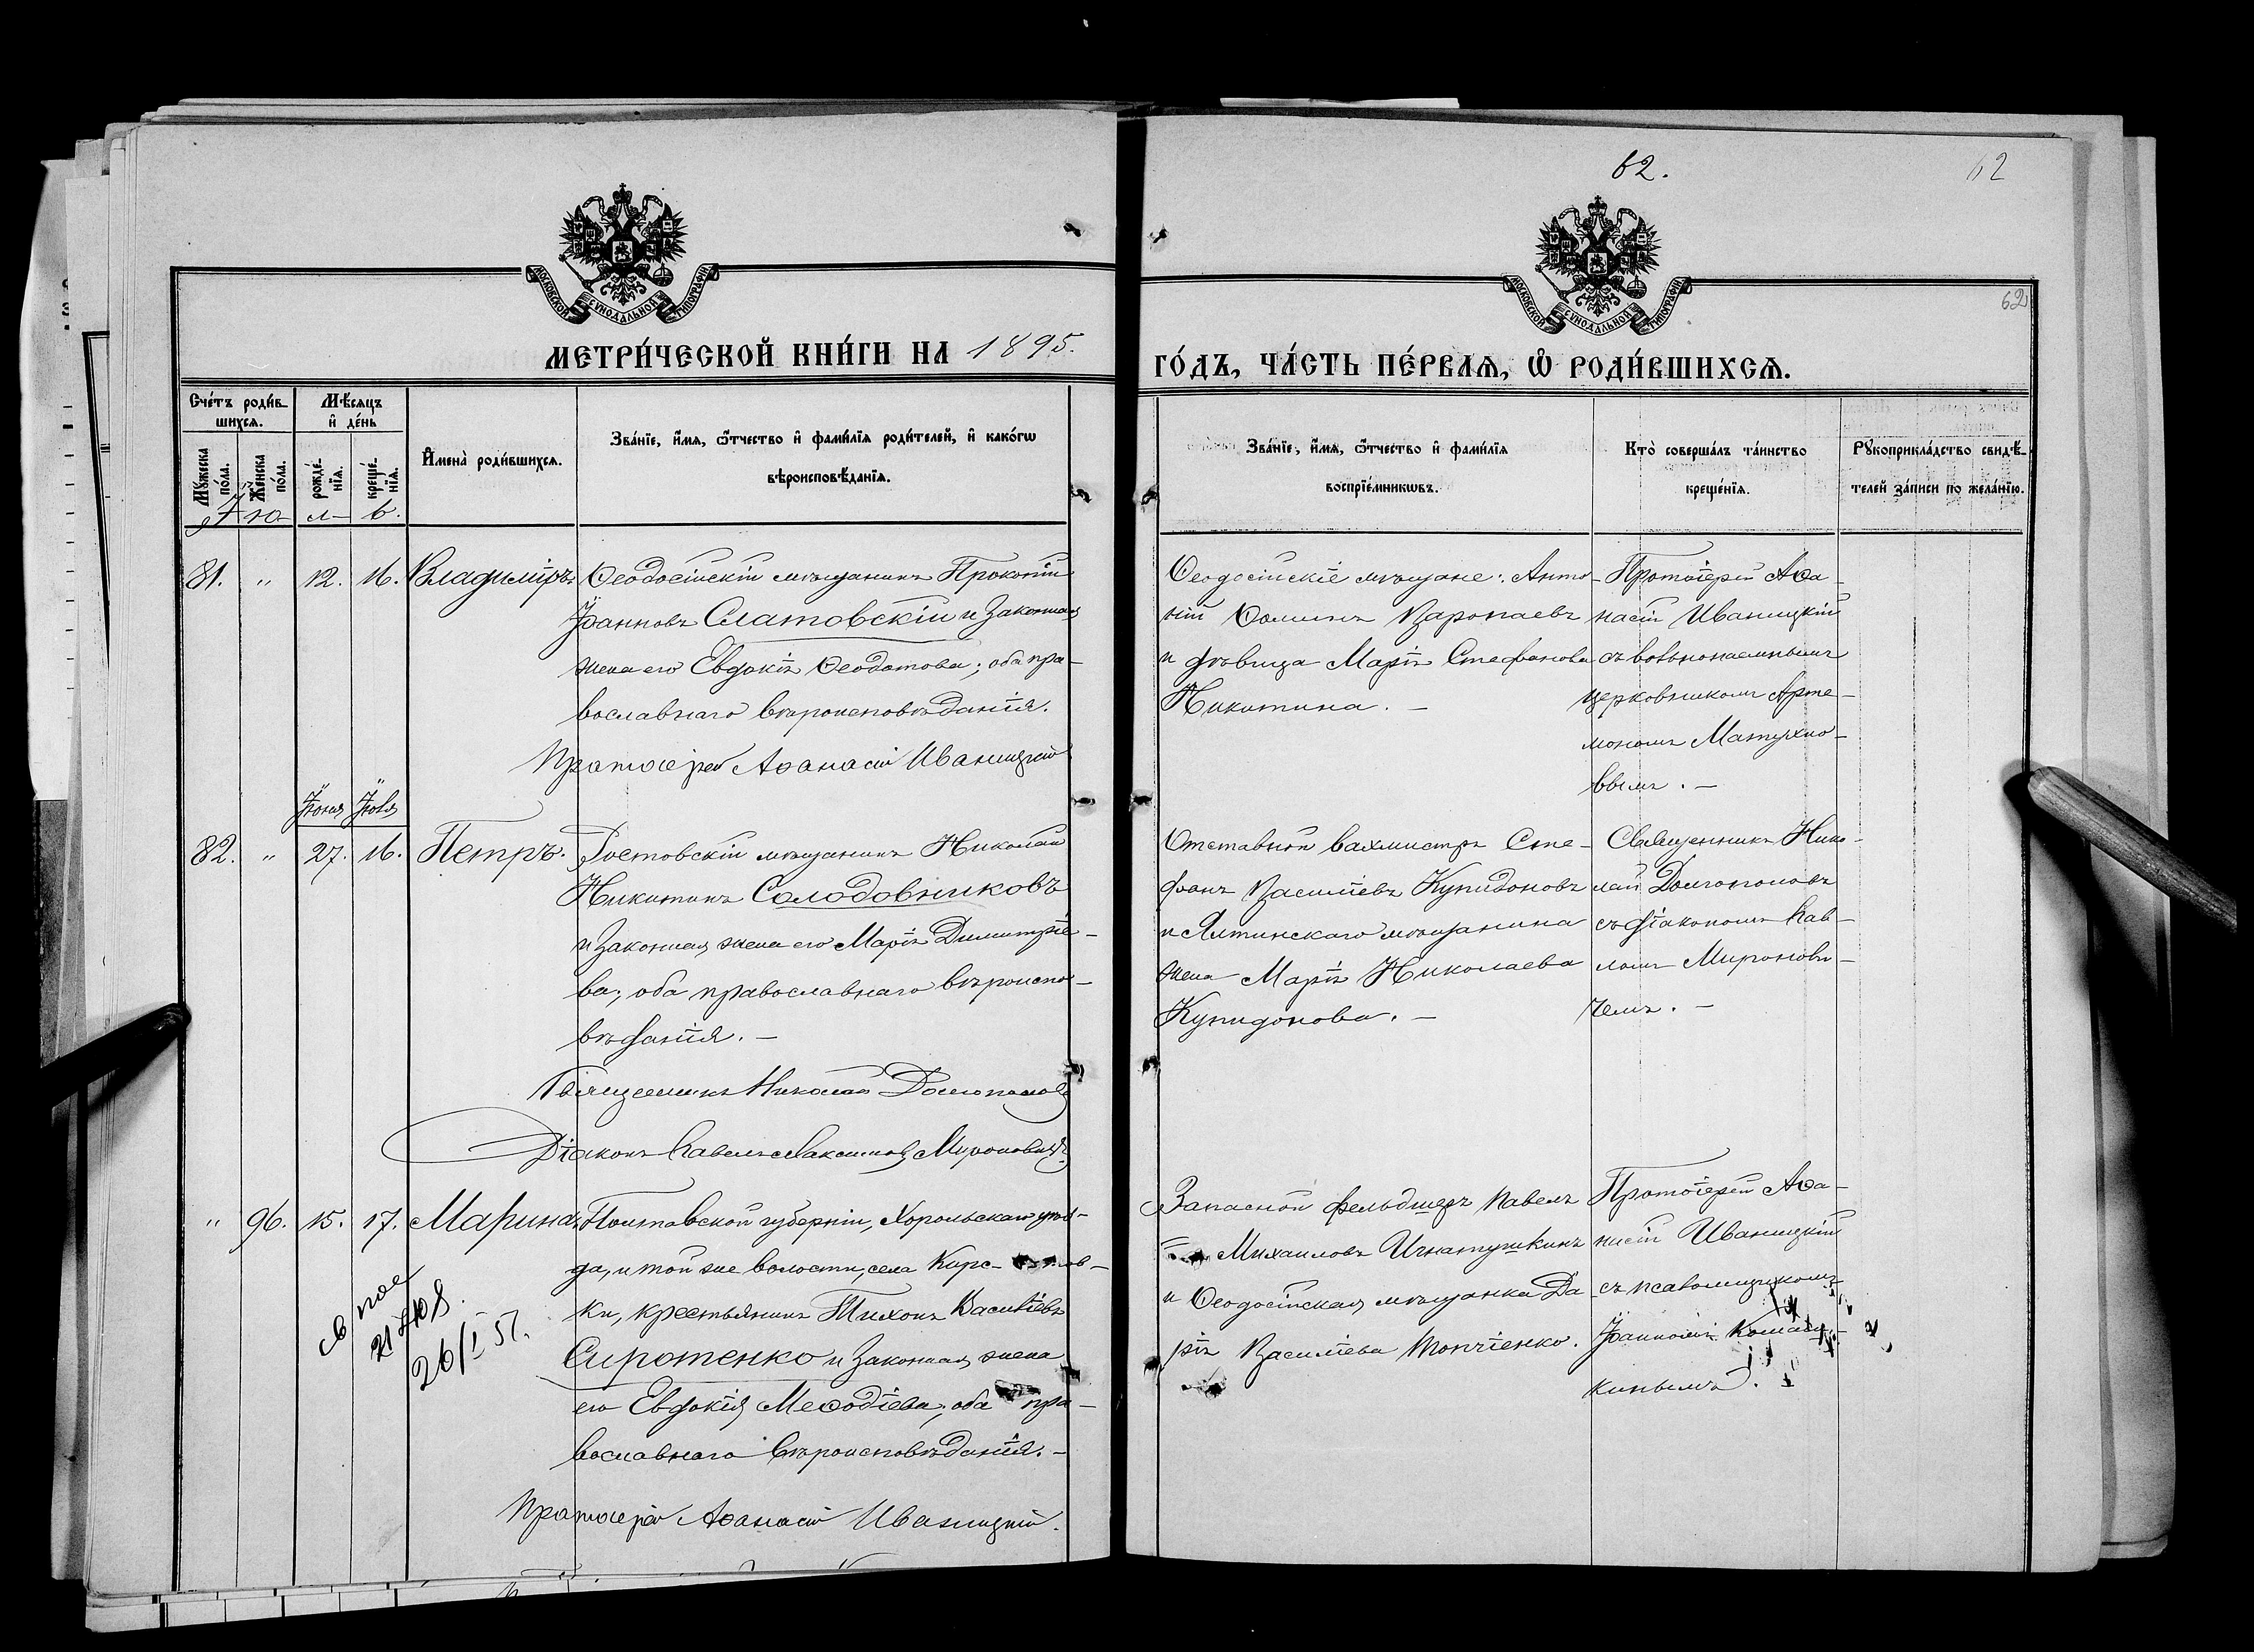 62.
62
62
МОСКОВСКОЙ СѴНОДАЛЬНОЙ ТИПОГРАФІИ
МОСКОВСКОЙ СѴНОДАЛЬНОЙ ТИПОГРАФІИ
МЕТРИ́ЧЕСКОЙ КНИ́ГИ НА 1895.
ГО́ДЪ, ЧА́СТЬ ПЕ́РВАѦ, Ѡ҆ РОДИ́ВШИХСѦ.
Сче́тъ роди́в-
шихся.
Мѣ́сяцъ
и҆ де́нь
Мꙋ́жеска по́ла.
Же́нска по́ла.
рожде́-
нїя.
креще́-
нїя.
И҆мена̀ роди́вшихся.
Зва́нїе, и҆́мя, ѻ҆́тчество и҆ фами́лїя роди́телей, и҆ како́гѡ
вѣроисповѣ́данїя.
Зва́нїе, и҆́мя, ѻ҆́тчество и҆ фами́лїя
воспрїе́мникѡвъ.
Кто̀ соверша́лъ та́инство
креще́нїя.
Рꙋкоприкла́дство свидѣ́-
телей за́писи по жела́нїю.
Ію- л- ь.
81. " 12. 16. Владиміръ
Ѳеодосійскій мѣщанинъ Прокопій
Іоанновъ Слатовскій и законная
жена его Евдокія Ѳеодотова; оба пра-
вославнаго вѣроисповѣданія.
Протоіерей Аѳанасій Иваницкій
Ѳеодосійскіе мѣщане: Анто-
ній Ѳоминъ Варопаевъ
и дѣвица Марія Стефанова
Никитина. —
Протоіерей Аѳа-
насій Иваницкій
съ вольнонаемнымъ
церковникомъ Арте-
мономъ Матухно-
вымъ. —
Іюня Іюля
82. " 27. 16. Петръ.
Ростовскій мѣщанинъ Николай
Никитинъ Солодовниковъ
и законная жена его Марія Димитріе-
ва; оба православнаго вѣроиспо-
вѣданія. —
Священникъ Николай Долгополовъ
Діаконъ Павелъ Максимовъ Мироновичъ
Отставной вахмистръ Сте-
фанъ Василіевъ Купидоновъ
и Ялтинскаго мѣщанина
жена Марія Николаева
Купидонова. —
Священникъ Нико-
лай Долгополовъ
съ діакономъ Пав-
ломъ Миронови-
чемъ. —
" 96. 15. 17. Марина
Полтавской губерніи, Хорольскаго уѣз-
да, и той же волости, села
ки, крестьянинъ Тихонъ Василіевъ
Сиротенко и законная жена
его Евдокія Меѳодіева; оба пра-
вославнаго вѣроисповѣданія. —
Протоіерей Аѳанасій Иваницкій.
26/I 51.
Запасной фельдшеръ Павелъ
Михаиловъ Игнатушкинъ
и Ѳеодосійская мѣщанка Да-
рія Василіева Топчіенко.
Протоіерей Аѳа-
насій Иваницкій
съ псаломщикомъ
Іоанномъ
кинымъ.